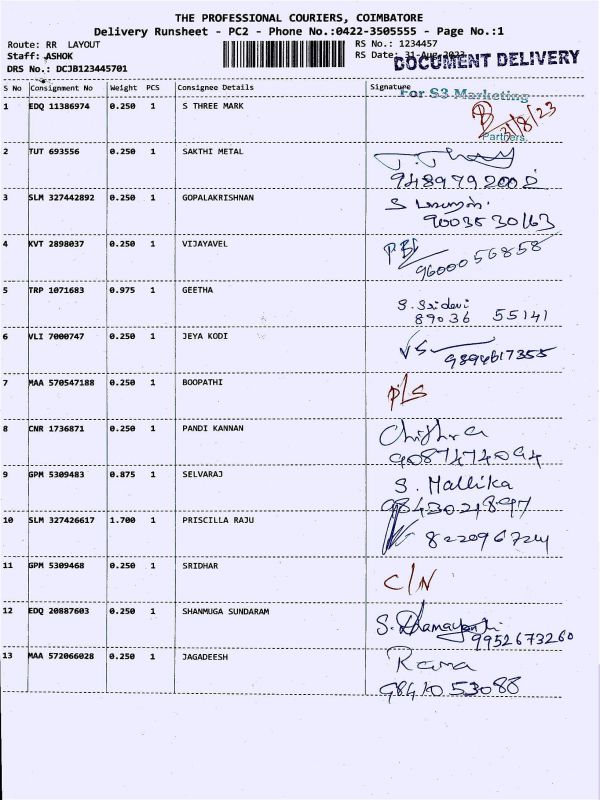 THE PROFESSIONAL COURIERS, COIMBATORE
Delivery Runsheet - PC2 - Phone No.:0422-3505555 - Page No.:1
Route: RR LAYOUT RS No.: 1234457
Staff: ASHOK RS Date: 31-Aug-2023
DOCUMENT DELIVERY
DRS No.: DCJB123445701
S No Consignment No Weight PCS Consignee Details Signature
For S3 Marketing
1 EDQ 11386974 0.250 1 S THREE MARK
31/8/23
Partners.
2 TUT 693556 0.250 1 SAKTHI METAL
9489792002
3 SLM 327442892 0.250 1 GOPALAKRISHNAN S
9003530163
4 KVT 2898037 0.250 1 VIJAYAVEL
9600056858
5 TRP 1071683 0.975 1 GEETHA
S. Sridevi
89036 55141
6 VLI 7000747 0.250 1 JEYA KODI VS
9894617355
7 MAA 570547188 0.250 1 BOOPATHI P/S
8 CNR 1736871 0.250 1 PANDI KANNAN Chithra
9087474094
9 GPM 5309483 0.875 1 SELVARAJ S. Mallika
9843021897
10 SLM 327426617 1.700 1 PRISCILLA RAJU
8220967244
11 GPM 5309468 0.250 1 SRIDHAR C/N
12 EDQ 20887603 0.250 1 SHANMUGA SUNDARAM S. Dhamayanthi
9952673260
13 MAA 572066028 0.250 1 JAGADEESH Rama
9841053088